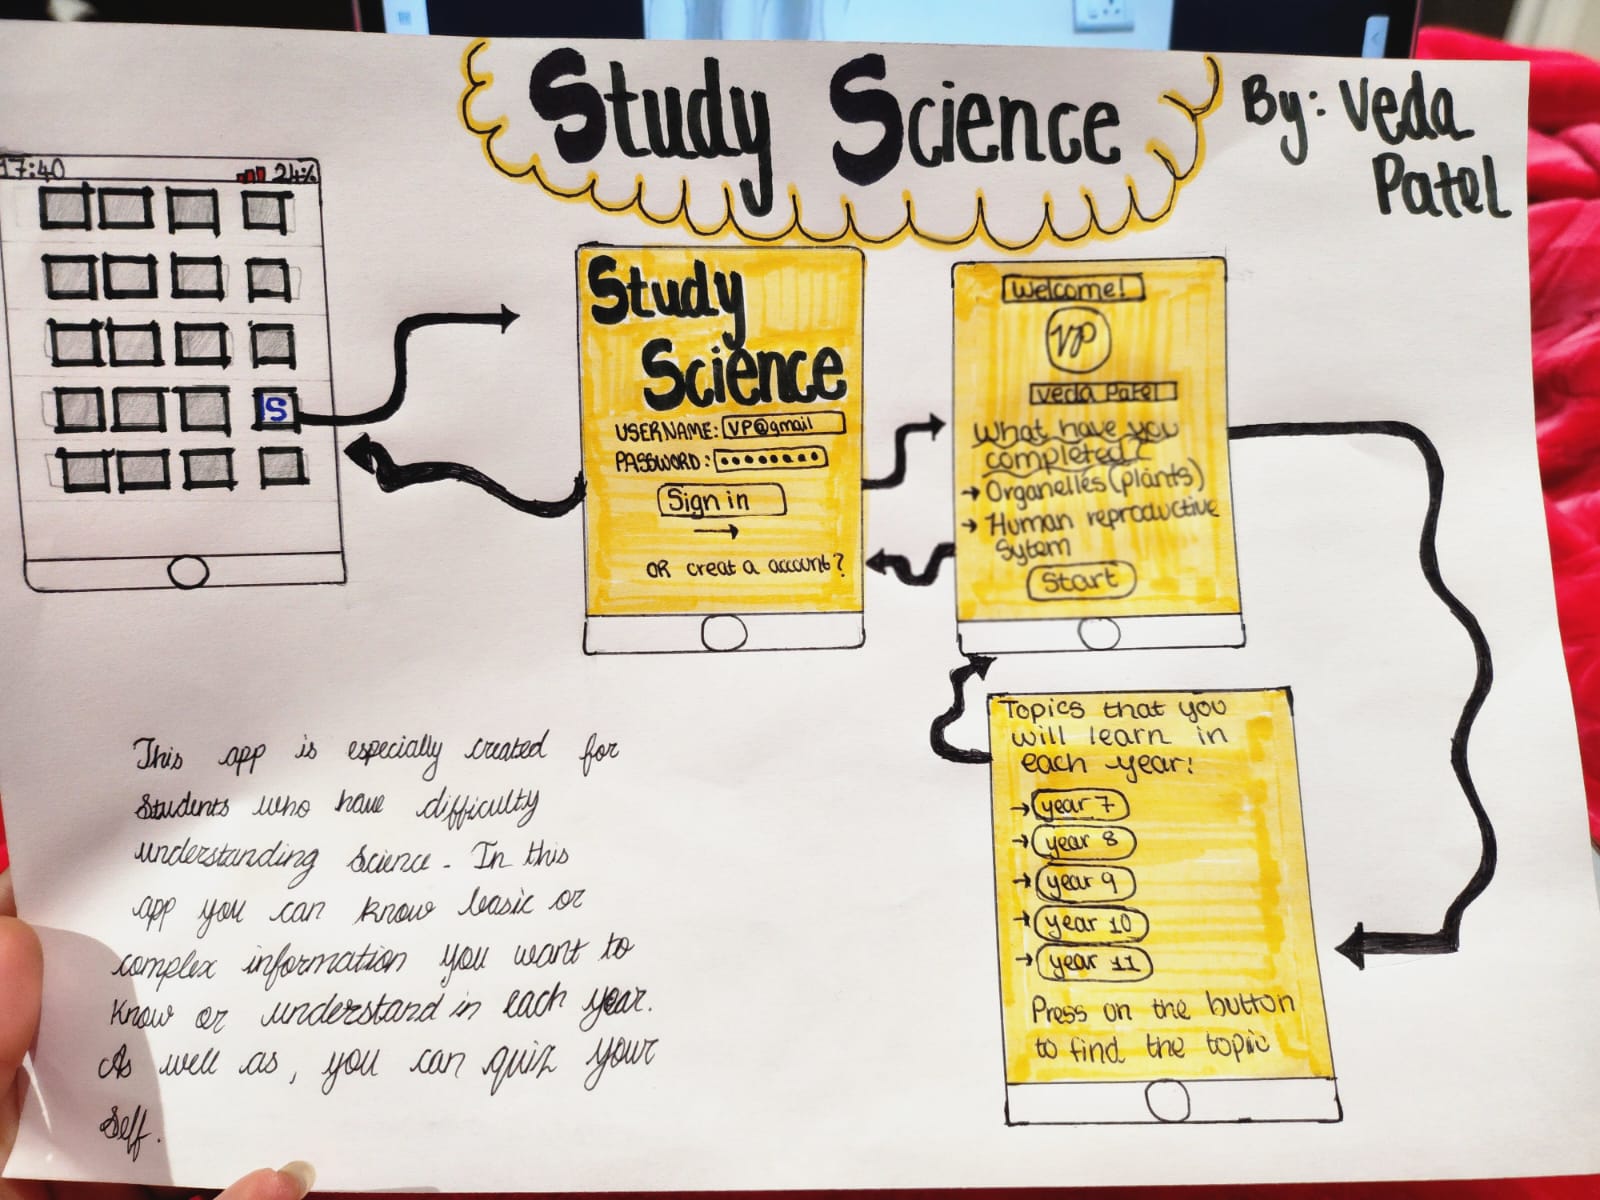 Study Science
By: Veda
Patel
17:40
24%
S
Study
Science
USERNAME: VP@gmail
PASSWORD: ••••••••
Sign in
OR creat a account?
Welcome!
VP
Veda Patel
What have you
completed?
→ Organelles (plants)
→ Human reproductive
Sytem
Start
Topics that you
will learn in
each year:
→ year 7
→ year 8
→ year 9
→ year 10
→ year 11
Press on the button
to find the topic
This app is especially created for
Students who have difficulty
understanding Science. In this
app you can know basic or
complex information you want to
know or understand in each year.
As well as, you can quiz your
Self.